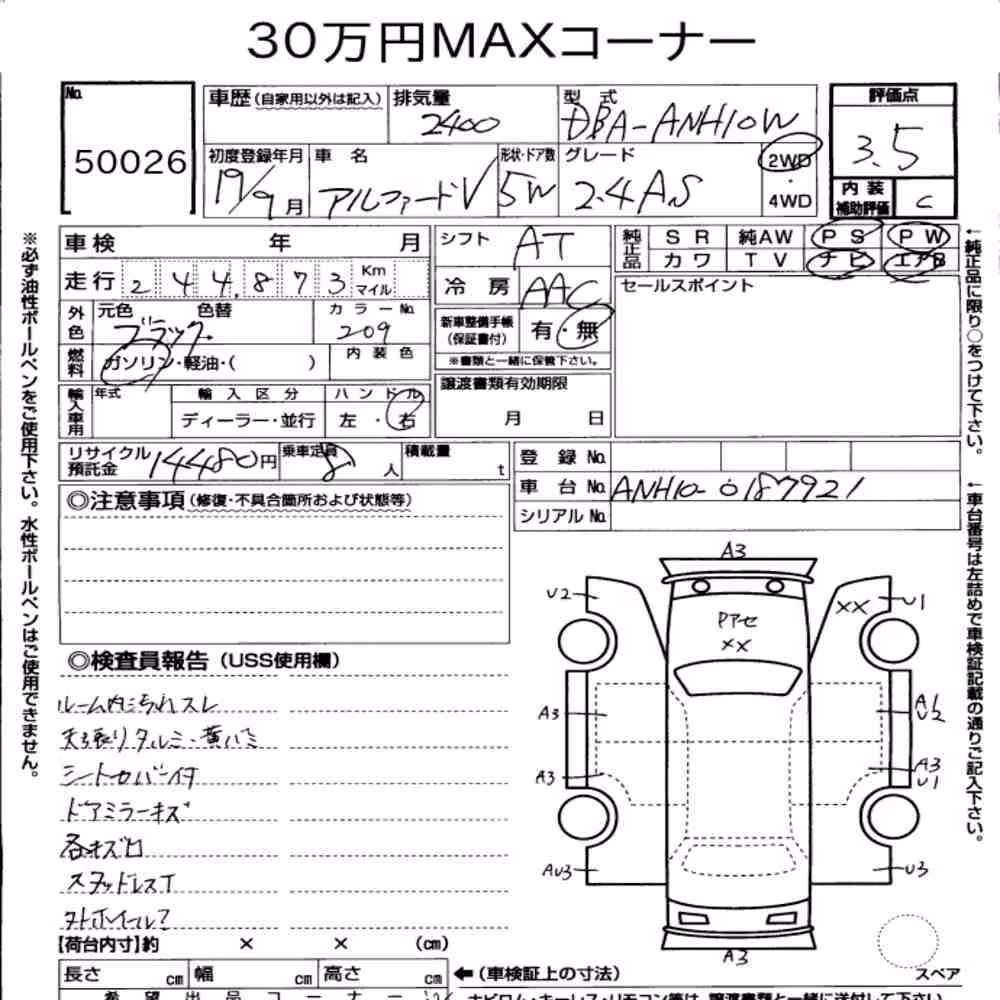 30万円MAXコーナー
No. 50026
車歴 (自家用以外は記入)
排気量 2400
型式 DBA-ANH10W
評価点 3.5
初度登録年月 19/9月
車名 アルファードV
形状・ドア数 5W
グレード 2.4AS
2WD・4WD
内装補助評価 C
車検 年 月
シフト AT
純正品 SR 純AW PS PW
カワ TV ナビ エアB
走行 244,873 Km マイル
冷房 AAC
セールスポイント
外色 元色 色替 ブラック
カラーNo. 209
新車整備手帳(保証書付) 有・無
※書類と一緒に保管下さい。
燃料 ガソリン・軽油・( )
内装色
譲渡書類有効期限 月 日
輸入車用 年式 輸入区分 ハンドル
ディーラー・並行 左・右
リサイクル預託金 14480円
乗車定員 8人
積載量 t
登録No.
車台No. ANH10-0187921
シリアルNo.
◎注意事項(修復・不具合箇所および状態等)
◎検査員報告(USS使用欄)
ルーム内にちれスレ
天張りタルミ・黄バミ
シートカバー付
ドアミラーキズ
各キズ凹
スタッドレスT
外ホイール?
【荷台内寸】約 × × (cm)
長さ cm 幅 cm 高さ cm
←(車検証上の寸法)
A3
U2
U1
XX
Pアセ
XX
A3
A1
U2
A3
A3
U1
AU3
U3
A3
スペア
※必ず油性ボールペンをご使用下さい。水性ボールペンはご使用できません。
←純正品に限り○をつけて下さい。
←車台番号は左詰めで車検証記載の通りご記入下さい。
希望出品コーナー